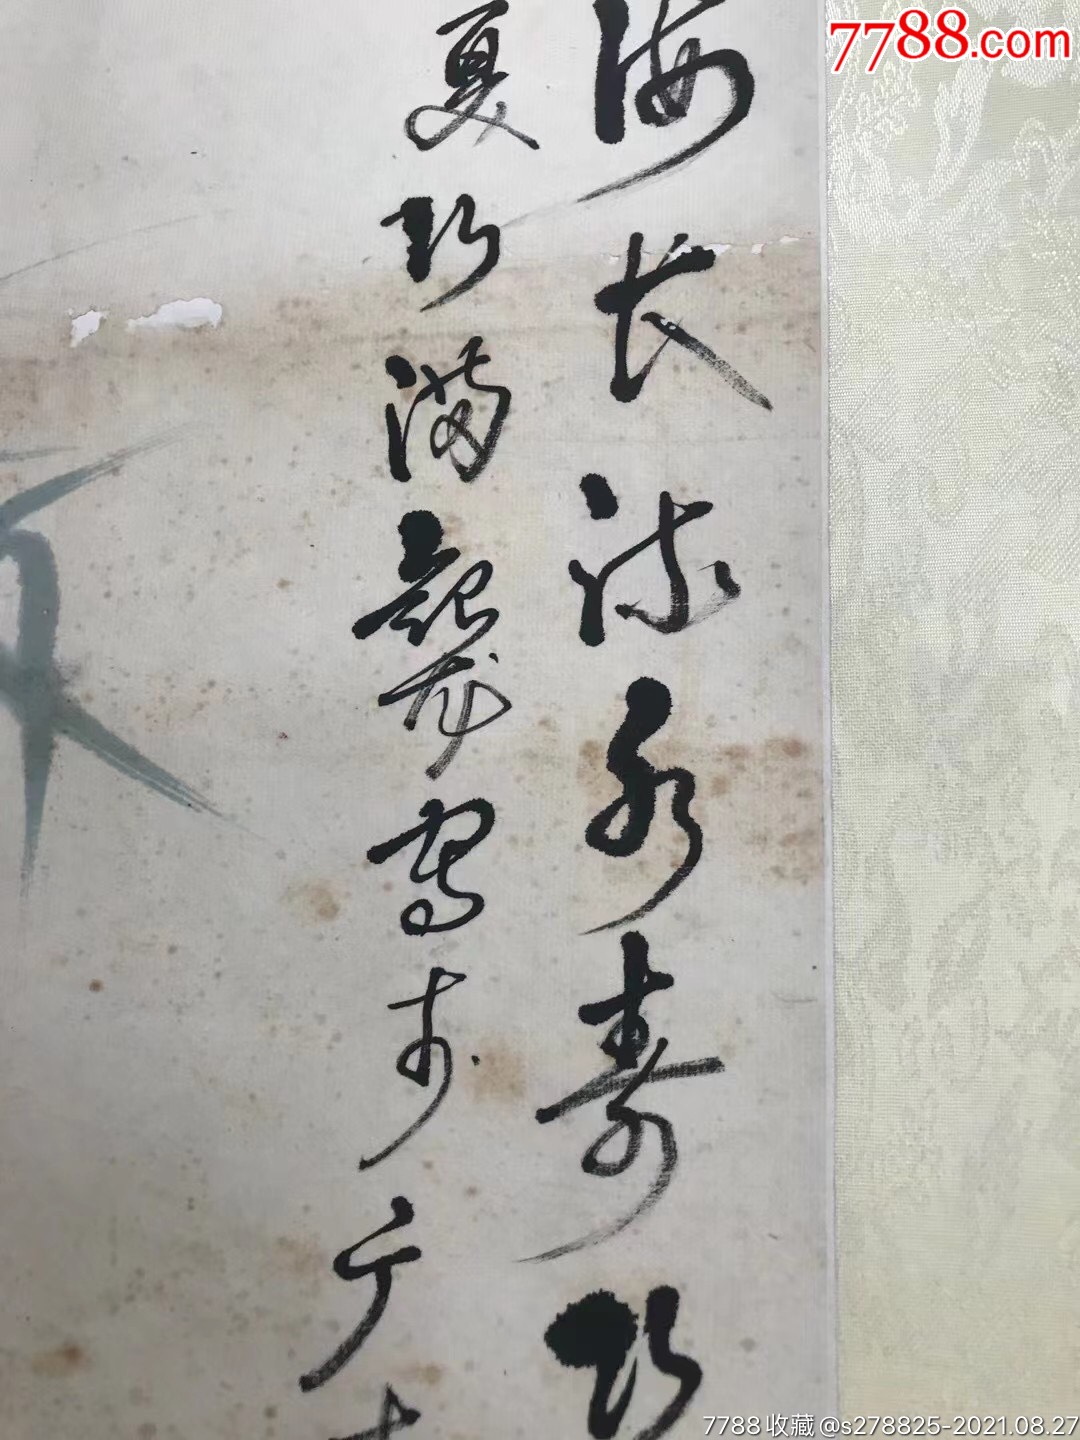 7788.com
海长流永寿
夏满龔写於广
7788收藏@s278825-2021.08.27